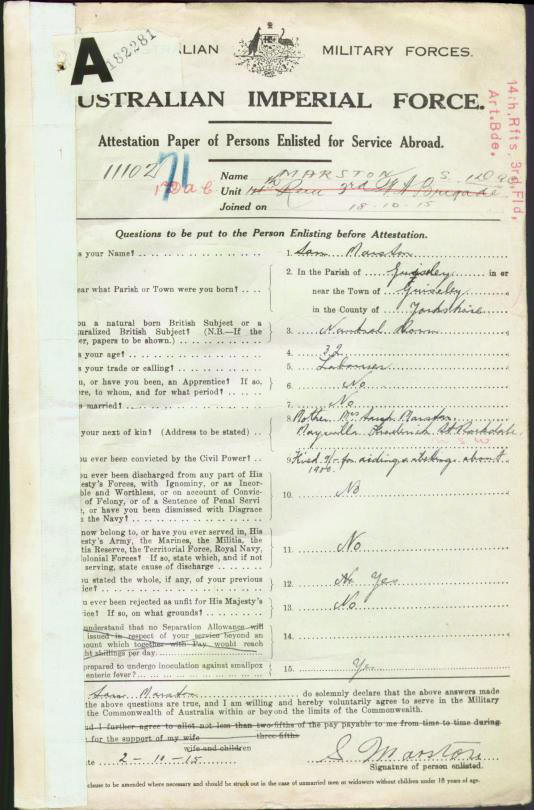 182281
A
TRALIAN MILITARY FORCES.
USTRALIAN IMPERIAL FORCE.
Attestation Paper of Persons Enlisted for Service Abroad.
14th, Rfts, 3rd, Fld, Art. Bde.
11102
Name MARSTON S.
Unit 3rd F A Brigade
Joined on 18-10-15
Questions to be put to the Person Enlisting before Attestation.
s your Name? 1. Sam Marston
2. In the Parish of Guiseley in or
ear what Parish or Town were you born? near the Town of Guiseley
in the County of Yorkshire
ou a natural born British Subject or a
uralized British Subject? (N.B.—If the 3. Natural Born
er, papers to be shown.)
s your age? 4. 32
s your trade or calling? 5. Labourer
u, or have you been, an Apprentice? If so,
re, to whom, and for what period? 6. No
s married? 7. No
8. Mother Mrs Marston
your next of kin? (Address to be stated) Frederick St Rockdale
N S W
ou ever been convicted by the Civil Power? 9. Fined for about
1900.
ou ever been discharged from any part of His
esty's Forces, with Ignominy, or as Incor-
ble and Worthless, or on account of Convic-
of Felony, or of a Sentence of Penal Servi- 10. No
, or have you been dismissed with Disgrace
the Navy?
now belong to, or have you ever served in, His
esty's Army, the Marines, the Militia, the
tia Reserve, the Territorial Force, Royal Navy,
olonial Forces? If so, state which, and if not 11. No
serving, state cause of discharge
u stated the whole, if any, of your previous
ice? 12. No Yes
u ever been rejected as unfit for His Majesty's
ice? If so, on what grounds? 13. No
understand that no Separation Allowance will
issued in respect of your service beyond an
mount which together with Pay would reach 14.
ht shillings per day.
prepared to undergo inoculation against smallpox
enteric fever? 15. Yes
Sam Marston do solemnly declare that the above answers made
the above questions are true, and I am willing and hereby voluntarily agree to serve in the Military
the Commonwealth of Australia within or beyond the limits of the Commonwealth.
nd I further agree to allot not less than two-fifths of the pay payable to me from time to time during
for the support of my wife three-fifths
wife and children
ate 2-10-15 S Marston
Signature of person enlisted.
clause to be amended where necessary and should be struck out in the case of unmarried men or widowers without children under 18 years of age.